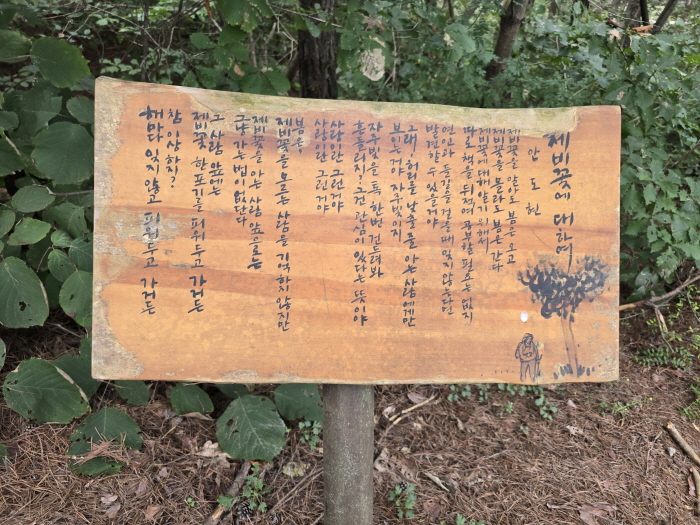 제비꽃에 대하여
안도현
제비꽃을 알아도 봄은 오고
제비꽃을 몰라도 봄은 간다
제비꽃에 대해 알기 위해서
따로 책을 뒤적여 공부할 필요는 없지
연인과 들길을 걸을 때 잊지 않는다면
발견할 수 있을 거야
그래, 허리를 낮출 줄 아는 사람에게만
보이는 거야 자줏빛이지
자줏빛을 톡 한번 건드려봐
흔들리지? 그건 관심이 있다는 뜻이야
사랑이란 그런 거야
사랑이란 그런 거야
봄은,
제비꽃을 모르는 사람을 기억하지 않지만
제비꽃을 아는 사람 앞으로는
그냥 가는 법이 없단다
그 사람 앞에는
제비꽃 한 포기를 피워두고 가거든
참 이상하지?
해마다 잊지 않고 피워두고 가거든